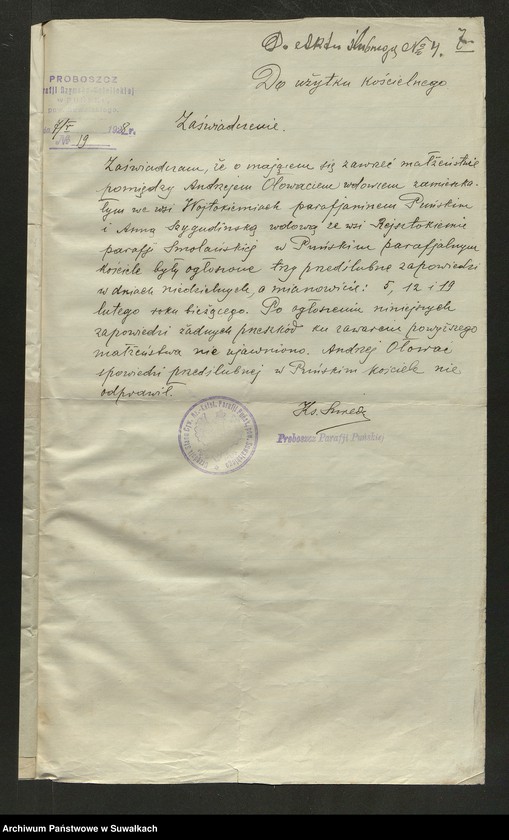 Do Aktu ślubnego № 4. 7
Do użytku kościelnego
PROBOSZCZ
Parafji Rzymsko-Katolickiej
r.
№ 19
Zaświadczenie.
Zaświadczam, że o mającem się zawrzeć małżeństwie
pomiędzy Andrzejem Ołowaciem wdowcem zamieszka-
łym we wsi Wojtokiemiach parafjaninem Puńskim
i Anną Szygudinską wdową ze wsi Rejsztokiemie
parafji Smolańskiej w Puńskim parafjalnym
kościele były ogłoszone trzy przedślubne zapowiedzi
w dniach niedzielnych, a mianowicie: 5, 12 i 19
lutego roku bieżącego. Po ogłoszeniu niniejszych
zapowiedzi żadnych przeszkód ku zawarciu powyższego
małżeństwa nie ujawniono. Andrzej Ołowac
spowiedzi przedślubnej w Puńskim kościele nie
odprawił.
Ks.
Proboszcz Parafji Puńskiej
Archiwum Państwowe w Suwałkach